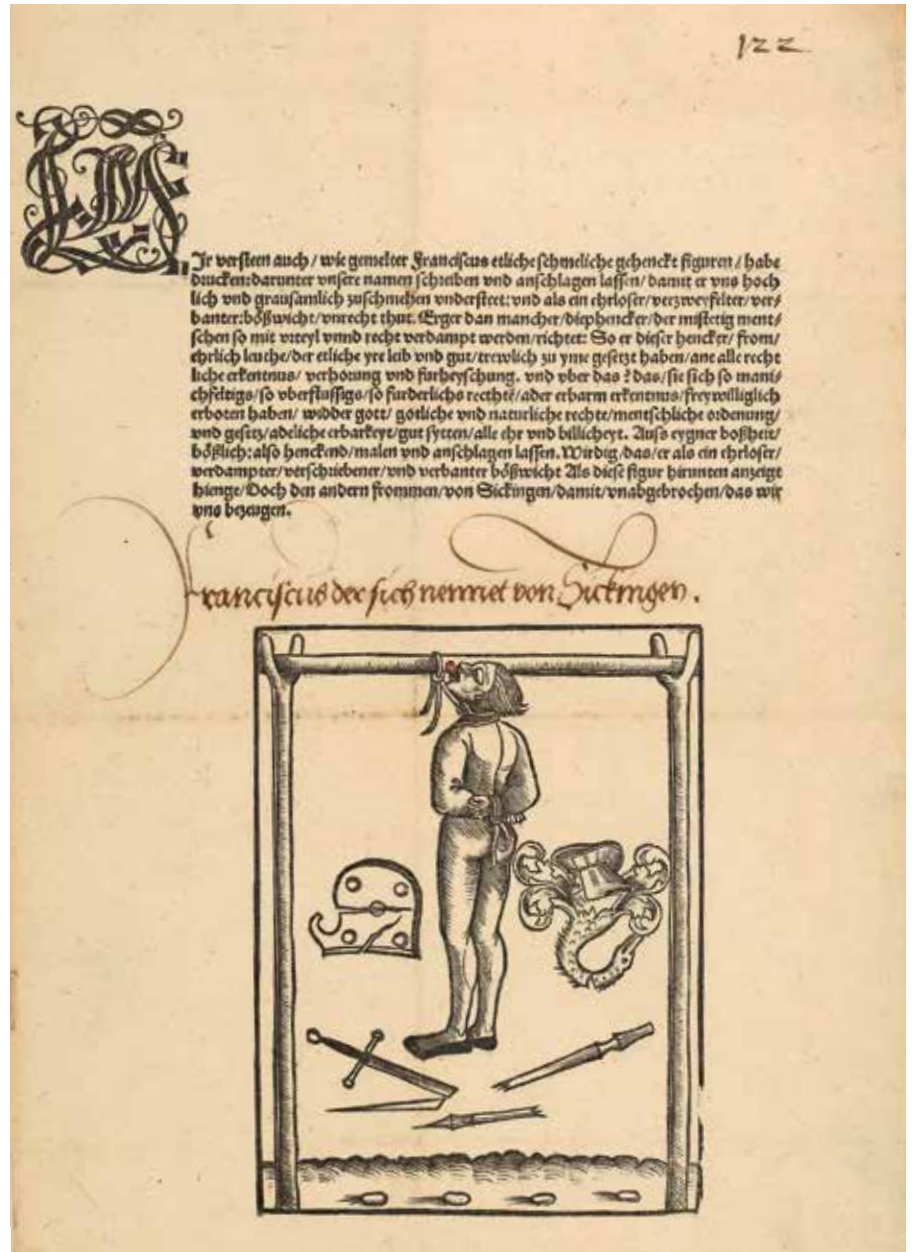 122
Ir versteen auch / wie gemelter Franciscus etliche schmeliche gehenckt figuren / habe
drucken: darunter vnsere namen schreiben vnd anschlagen lassen / damit er vns hoch
lich vnd grausamlich zuschmehen vndersteet: vnd als ein ehrloser / verzweyfelter / ver⸗
banter: bößwicht / vnrecht thut. Erger dan mancher / diephencker / der mistetig ment⸗
schen so mit vrteyl vnnd recht verdampt werden / richtet: So er dieser hencker / from /
ehrlich leuthe / der etliche yre leib vnd gut / trewlich zu yme gesetzt haben / ane alle recht
liche erkentnus / verhorung vnd furheyschung. vnd vber das ? das / sie sich so mani⸗
chfeltigs / so vberflussigs / so furderlichs recthtē / ader erbarm erkentnus / freywilliglich
erboten haben / widder gott / gotliche vnd naturliche rechte / mentschliche ordenung /
vnd gesetz / adeliche erbarkeyt / gut sytten / alle ehr vnd billicheyt. Auss eygner boßheit /
bößlich: also henckend / malen vnd anschlagen lassen. Wirdig / das / er als ein ehrloser /
verdampter / verschriebener / vnd verbanter bößwicht Als diese figur hirunten anzeigt
hienge / Doch den andern frommen / von Sickingen / damit / vnabgebrochen / das wir
vns bezeugen.
Franciscus der sich nennet von Sickingen.